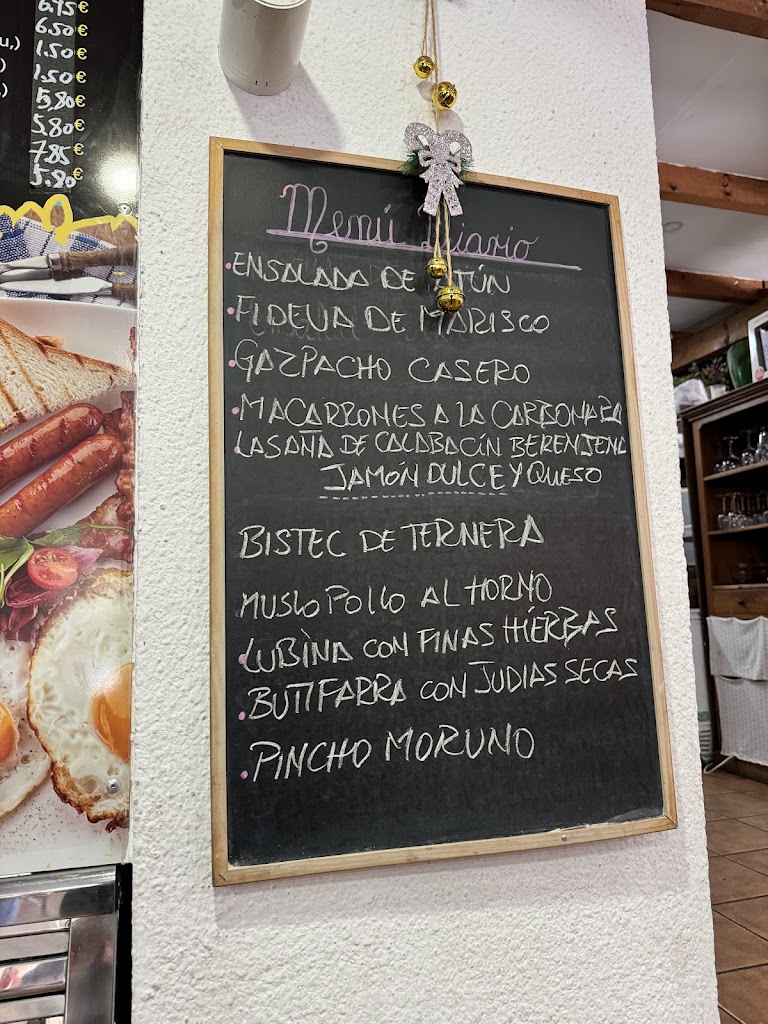 6.95€
6.50€
1.50€
1.50€
5,80€
5.80€
7.85€
5.80€
Menú Diario
ENSALADA DE ATÚN
FIDEUA DE MARISCO
GAZPACHO CASERO
MACARRONES A LA CARBONARA
LASAÑA DE CALABACÍN BERENJENA
JAMÓN DULCE Y QUESO
BISTEC DE TERNERA
MUSLO POLLO AL HORNO
LUBÌNA CON FINAS HÍERBAS
BUTIFARRA CON JUDIAS SECAS
PINCHO MORUNO